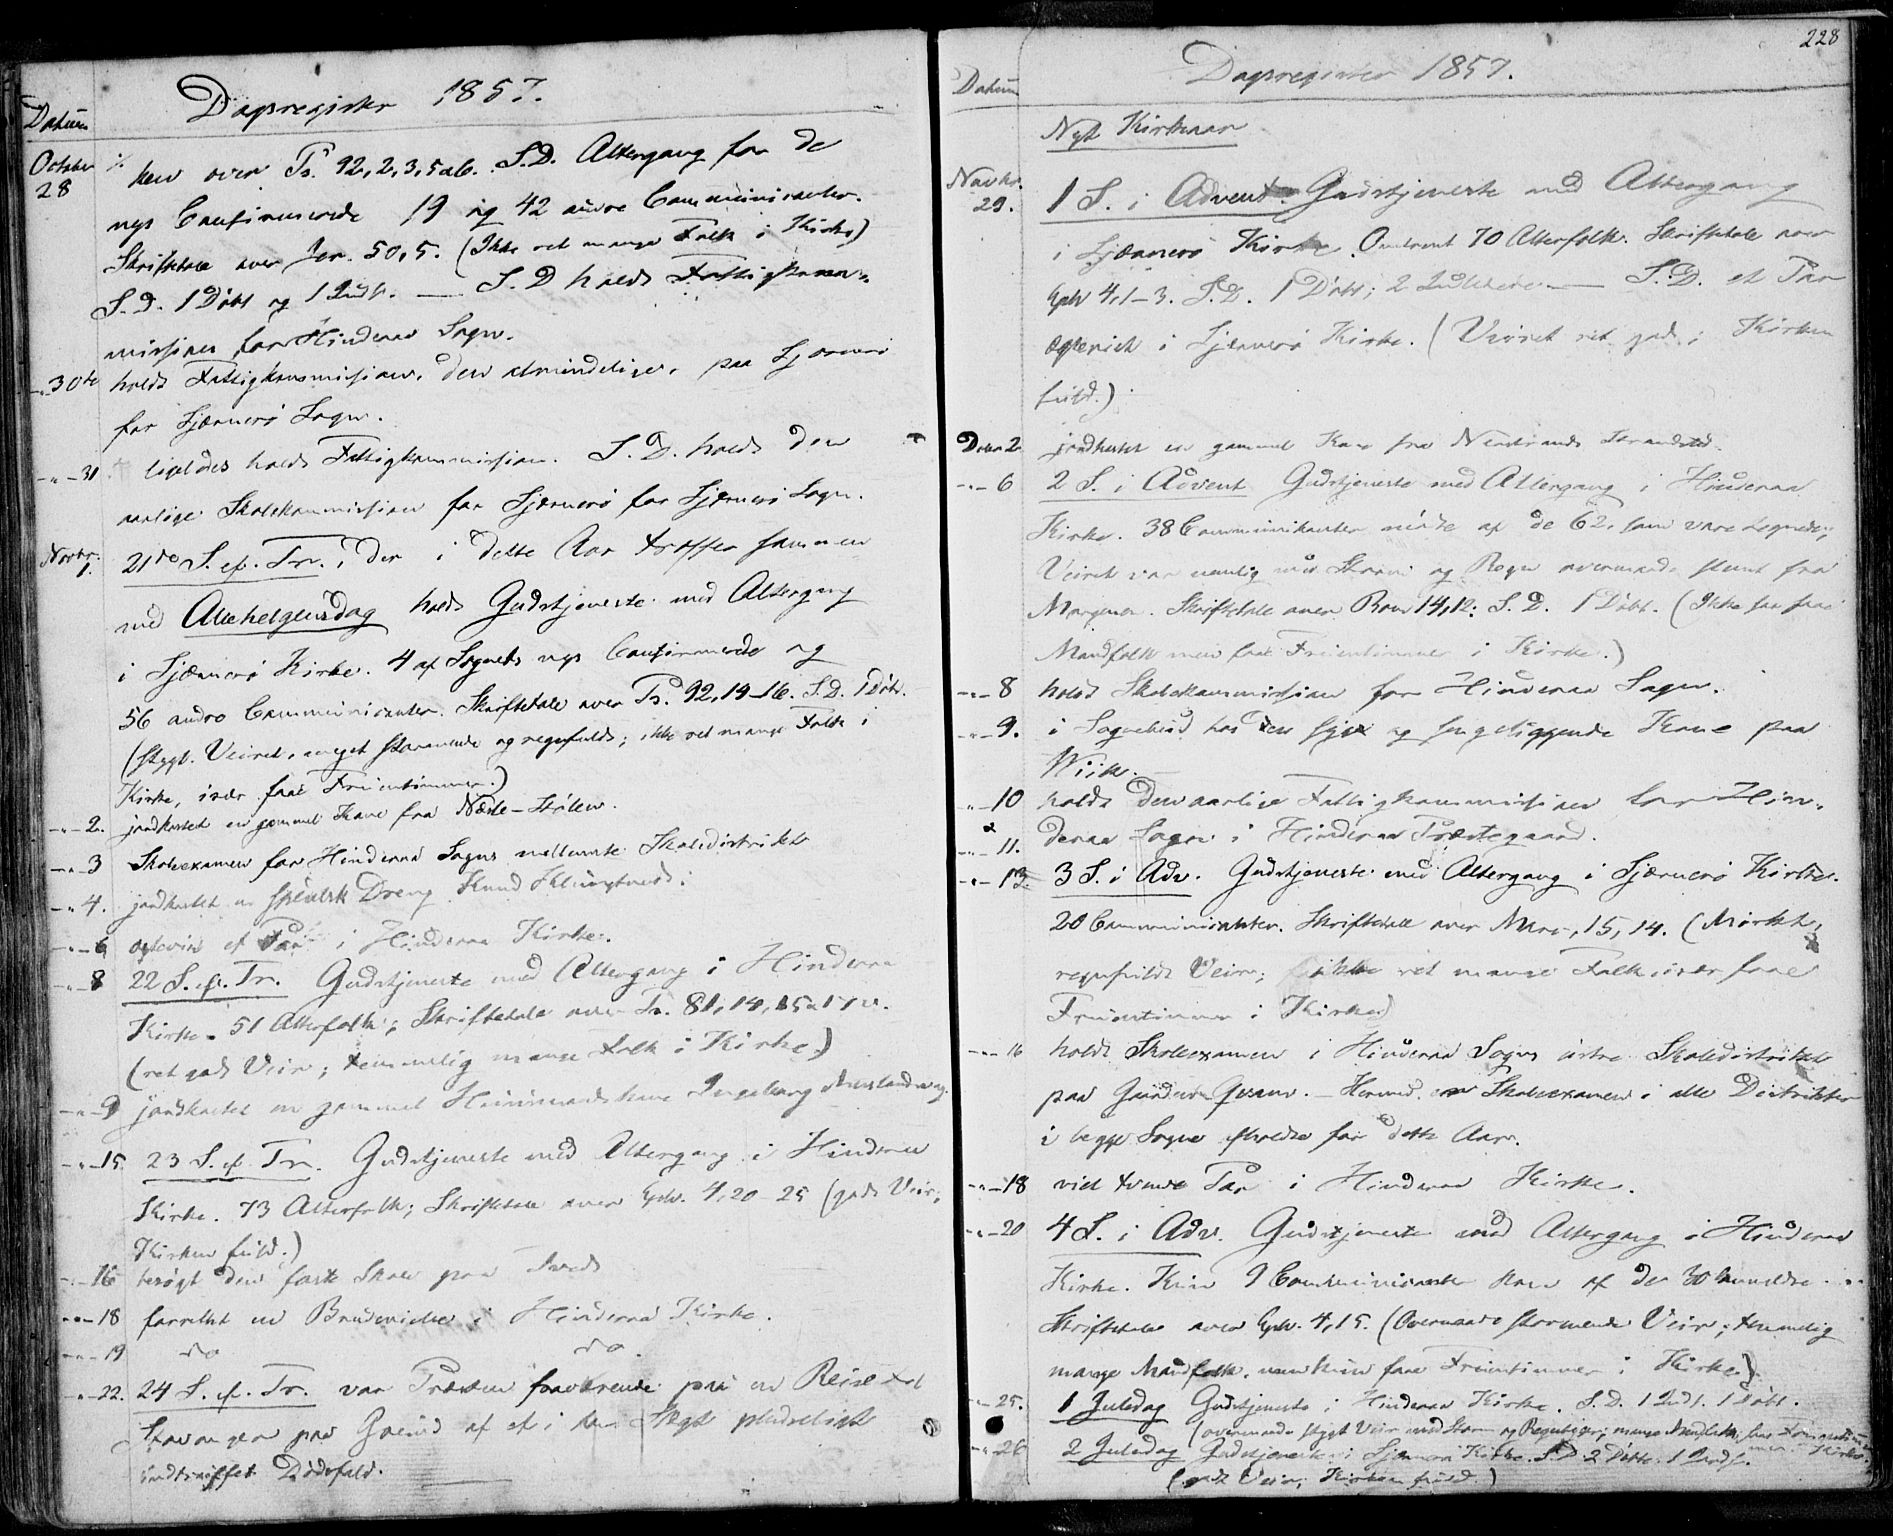 Dagsregister 1857.
Datum
October 28 ken over Ps. 92, 2, 3, 5 a 6. S.D. Altergang for de
nys Confirmerede 19 og 42 andre Communicanter.
Skriftetale over Jer. 50, 5. (Ikke ret mange Folk i Kirke)
S.D. 1 Døbt og 1 Indl. — S.D. holdt Fattigkom-
mission for Hinderaa Sogn.
-"- 30te holdt Fattigkommission, den almindelige, paa Sjærnerø
for Sjærnerø Sogn.
-"- 31 ligeledes holdt Fattigkommission. S.D. holdt den
aarlige Skolekommission for Sjærnerø Sogn.
Novbr. 1. 21de S. ef. Tr., der i dette Aar træffer sammen
med Allehelgensdag holdt Gudstjeneste med Altergang
i Sjærnerø Kirke. 4 af Sognets nys Confirmerede og
56 andre Communicanter. Skriftetale over Ps. 92, 14-16. S.D. 1 Døbt.
(stygt Veiret, meget stormende og regnfuldt; ikke ret mange Folk i
Kirke, især faae Fruentimmer.)
-"- 2. jordkastet en gammel Kone fra
-"- 3 Skoleexamen for Hinderaa Sogns mellemste Skoledistrikt
-"- 4. jordkastet en Dreng Knud
-"- 6 egteviet et Par i Hinderaa Kirke.
-"- 8 22 S. ef. Tr. Gudstjeneste med Altergang i Hinderaa
Kirke. 51 Alterfolk; Skriftetale over Ps. 81, 14, 15 a 17 v.
(ret godt Veir; temmelig mange Folk i Kirke)
-"- 9 jordkastet en gammel Ingeborg
-"- 15 23 S. ef. Tr. Gudstjeneste med Altergang i Hinderaa
Kirke. 73 Alterfolk; Skriftetale over Eph. 4, 20-25 (godt Veir;
Kirken fuld.)
-"- 16 besøgt den faste Skole paa
-"- 18 forrettet en Brudevielse i Hinderaa Kirke.
-"- 19 do do.
-"- 22. 24 S. ef. Tr. var Præsten fraværende paa en Reise til
Stavanger paa Grund af et i hans Slægt pludseligt
indtruffet Dødsfald.
228
Dagsregister 1857.
Datum
Nyt Kirkeaar
Novbr. 29. 1 S. i Advent. Gudstjeneste med Altergang
i Sjærnerø Kirke. Omtrent 70 Alterfolk. Skriftetale over
Eph 4, 1-3. S.D. 1 Døbt; 2 Indledede — S.D. et Par
ægteviet i Sjærnerø Kirke. (Veiret ret godt; Kirken
fuld.)
Decbr 2 jordkastet en gammel Kone fra
-"- 6 2 S. i Advent Gudstjeneste med Altergang i Hinderaa
Kirke. 38 Communikanter mødte af de 62, som vare tegnede;
Veiret var nemlig med Storm og Regn overmaade slemt fra
Morgenen. Skriftetale over Rom 14, 12. S.D. 1 Døbt. (Ikke saa faae
Mandfolk men faae Fruentimmer i Kirke.)
-"- 8 holdt Skolekommission for Hinderaa Sogn.
-"- 9. i Sognebud hos en syg og sengeliggende Kone paa
Wiik.
-"- 10 holdt den aarlige Fattigkommission for Hin-
& -"- 11. deraa Sogn i Hinderaa Præstegaard.
-"- 13. 3 S. i Adv. Gudstjeneste med Altergang i Sjærnerø Kirke.
20 Communicanter. Skriftetale over Marc. 15, 14. (Mørkt,
regnfuldt Veir; ikke ret mange Folk, især faae
Fruentimmer i Kirke)
-"- 16 holdt Skoleexamen i Hinderaa Sogns østre Skoledistrikt
paa Gaarden Qvame. – Hermed er Skoleexamen i alle Distrikter
i begge Sogne afholdte for dette Aar.
-"- 18 viet tvende Par i Hinderaa Kirke.
-"- 20 4 S. i Adv. Gudstjeneste med Altergang i Hinderaa
Kirke. Kun 9 Communicanter kom af de 30 anmeldte
Skriftetale over Eph. 4, 15. (Overmaade stormende Veir; temmelig
mange Mandfolk, men kun faae Fruentimmer i Kirke)
-"- 25. 1 Juledag Gudstjeneste i Hinderaa Kirke. S.D. 1 Indl. 1 Døbt.
(overmaade stygt Veir med Storm og mange Mandfolk, faae Fruentim-
mer i Kirke.)
-"- 26 2 Juledag Gudstjeneste i Sjærnerø Kirke. S.D. 2 Døbte. 1 Indl.
(godt Veir; Kirken fuld.)